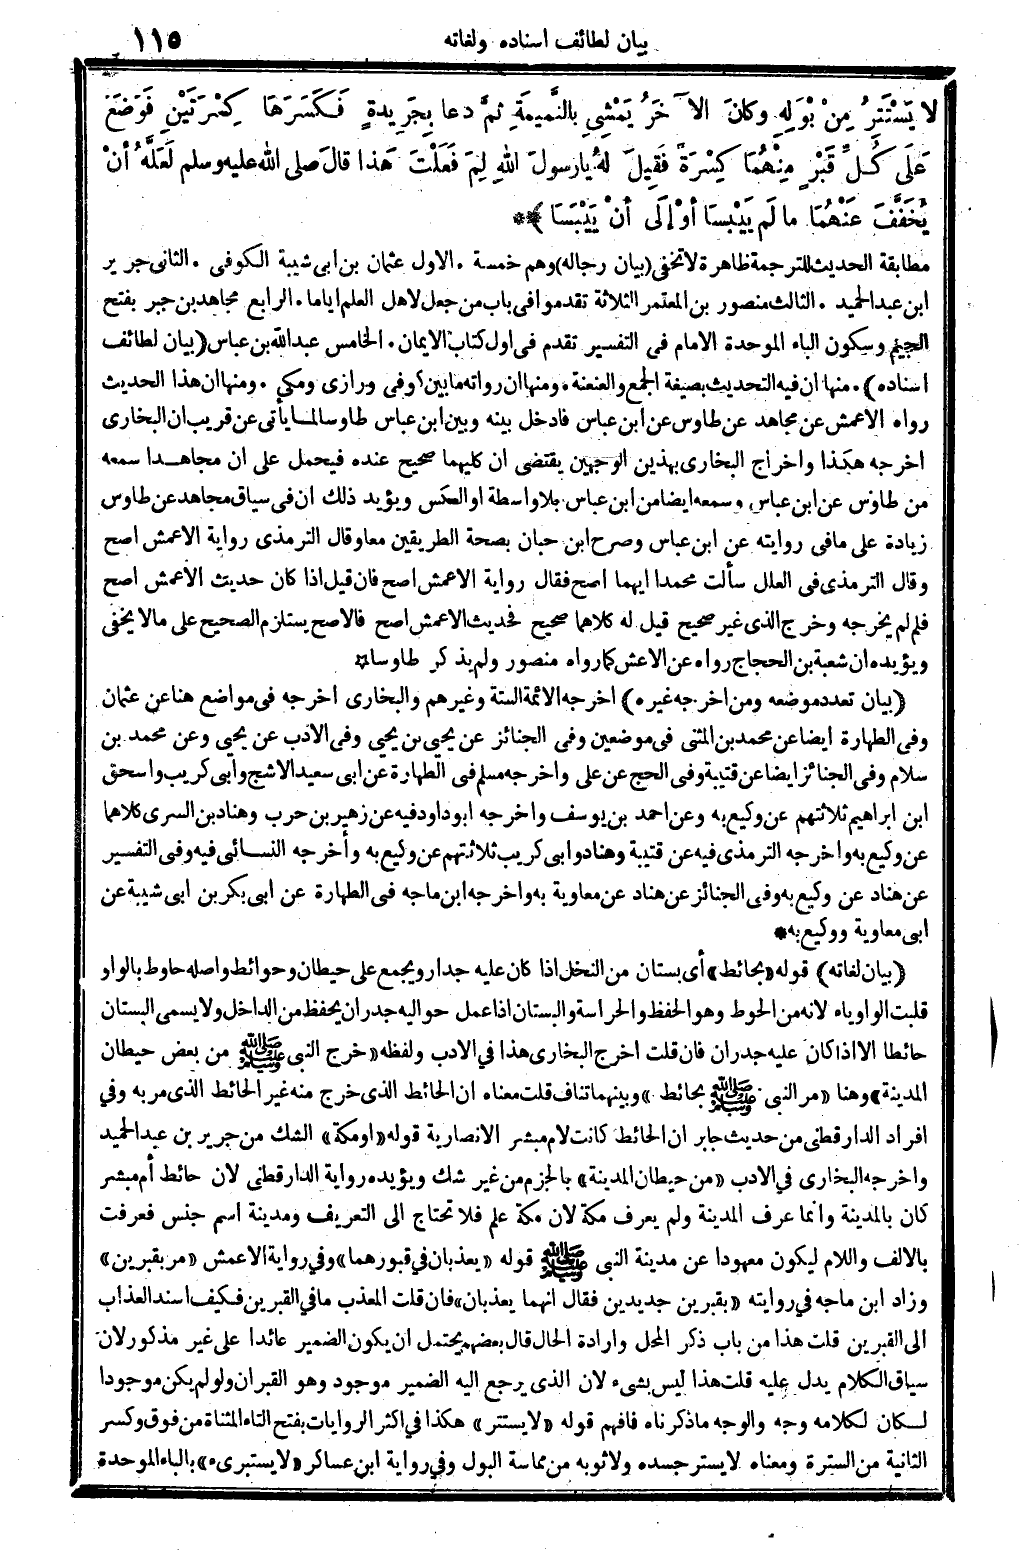 بيان لطائف اسناده ولغاته ١١٥
لا يَسْتَتِرُ مِنْ بَوْلِهِ وكانَ الآخَرُ يَمْشِي بِالنَّمِيمَةِ ثمَّ دعا بِجَرِيدةٍ فَكَسَرَهَا كِسْرَتَيْنِ فَوَضَعَ
عَلَى كُلِّ قَبْرٍ مِنْهُمَا كِسْرَةً فَقِيلَ لهُ يارسولَ اللهِ لِمَ فَعَلْتَ هَذا قالَ صلى الله عليه وسلم لَعَلَّهُ أنْ
يُخَفَّفَ عَنْهُمَا ما لَم يَيْبسَا أوْ إلَى أنْ يَيْبَسَا ﴾**
مطابقة الحديث للترجمة ظاهرة لاتخفى (بيان رجاله) وهم خمسة . الاول عثمان بن ابى شيبة الكوفى . الثانى جرير
ابن عبد الحميد . الثالث منصور بن المعتمر الثلاثة تقدموا فى باب من جعل لاهل العلم اياما . الرابع مجاهد بن جبر بفتح
الجيم وسكون الباء الموحدة الامام فى التفسير تقدم فى اول كتاب الايمان . الخامس عبد الله بن عباس (بيان لطائف
اسناده) . منها ان فيه التحديث بصيغة الجمع والعنعنة . ومنها ان رواته ما بين كوفى ورازى ومكى . ومنها ان هذا الحديث
رواه الاعمش عن مجاهد عن طاوس عن ابن عباس فادخل بينه وبين ابن عباس طاوسا لما يأتى عن قريب ان البخارى
اخرجه هكذا واخراج البخارى بهذين الوجهين يقتضى ان كليهما صحيح عنده فيحمل على ان مجاهدا سمعه
من طاوس عن ابن عباس وسمعه ايضا من ابن عباس بلا واسطة او العكس ويؤيد ذلك ان فى سياق مجاهد عن طاوس
زيادة على مافى روايته عن ابن عباس وصرح ابن حبان بصحة الطريقين معا وقال الترمذى رواية الاعمش اصح
وقال الترمذى فى العلل سألت محمدا ايهما اصح فقال رواية الاعمش اصح فان قيل اذا كان حديث الاعمش اصح
فلم لم يخرجه وخرج الذى غير صحيح قيل له كلاهما صحيح فحديث الاعمش اصح فالاصح يستلزم الصحيح على مالا يخفى
ويؤيده ان شعبة بن الحجاج رواه عن الاعمش كما رواه منصور ولم يذكر طاوسا *
(بيان تعدد موضعه ومن اخرجه غيره) اخرجه الائمة الستة وغيرهم والبخارى اخرجه فى مواضع هنا عن عثمان
وفى الطهارة ايضا عن محمد بن المثنى فى موضعين وفى الجنائز عن يحيى بن يحيى وفى الادب عن يحيى وعن محمد بن
سلام وفى الجنائز ايضا عن قتيبة وفى الحج عن على واخرجه مسلم فى الطهارة عن ابى سعيد الاشج وابى كريب واسحق
ابن ابراهيم ثلاثتهم عن وكيع به وعن احمد بن يوسف واخرجه ابو داود فيه عن زهير بن حرب وهناد بن السرى كلاهما
عن وكيع به واخرجه الترمذى فيه عن قتيبة وهناد وابى كريب ثلاثتهم عن وكيع به وأخرجه النسائى فيه وفى التفسير
عن هناد عن وكيع به وفى الجنائز عن هناد عن معاوية به واخرجه ابن ماجه فى الطهارة عن ابى بكر بن ابى شيبة عن
ابى معاوية ووكيع به *
(بيان لغاته) قوله «بحائط» أى بستان من النخل اذا كان عليه جدار ويجمع على حيطان وحوائط واصله حاوط بالواو
قلبت الواو ياء لانه من الحوط وهو الحفظ والحراسة والبستان اذا عمل حواليه جدران يحفظ من الداخل ولا يسمى البستان
حائطا الا اذا كان عليه جدران فان قلت اخرج البخارى هذا في الادب ولفظه «خرج النبى ﷺ من بعض حيطان
المدينة» وهنا «مر النبى ﷺ بحائط» وبينهما تناف قلت معناه ان الحائط الذى خرج منه غير الحائط الذى مر به وفي
افراد الدارقطنى من حديث جابر ان الحائط كانت لام مبشر الانصارية قوله «او مكة» الشك من جرير بن عبد الحميد
واخرجه البخارى في الادب «من حيطان المدينة» بالجزم من غير شك ويؤيده رواية الدارقطنى لان حائط أم مبشر
كان بالمدينة وانما عرف المدينة ولم يعرف مكة لان مكة علم فلا تحتاج الى التعريف ومدينة اسم جنس فعرفت
بالالف واللام ليكون معهودا عن مدينة النبى ﷺ قوله «يعذبان في قبورهما» وفي رواية الاعمش «مر بقبرين»
وزاد ابن ماجه في روايته «بقبرين جديدين فقال انهما يعذبان» فان قلت المعذب ما في القبرين فكيف اسند العذاب
الى القبرين قلت هذا من باب ذكر المحل وارادة الحال قال بعضهم يحتمل ان يكون الضمير عائدا على غير مذكور لان
سياق الكلام يدل عليه قلت هذا ليس بشىء لان الذى يرجع اليه الضمير موجود وهو القبران ولو لم يكن موجودا
لكان لكلامه وجه والوجه ما ذكرناه فافهم قوله «لا يستتر» هكذا في اكثر الروايات بفتح التاء المثناة من فوق وكسر
الثانية من السترة ومعناه لا يستر جسده ولا ثوبه من مماسة البول وفي رواية ابن عساكر «لا يستبرىء» بالباء الموحدة